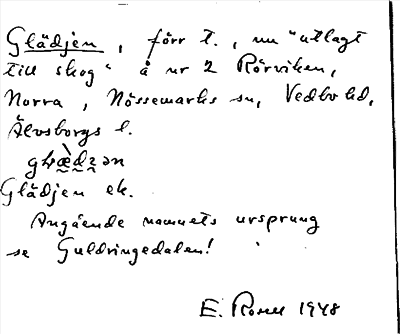 Glädjen, förr t., nu "utlagt
till skog" å nr 2 Rörviken,
Norra, Nössemarks sn, Vedbo hd,
Älvsborgs l.
Glädjen ek.
Angående namnets ursprung
se Guldringedalen!
E. Rosell 1948